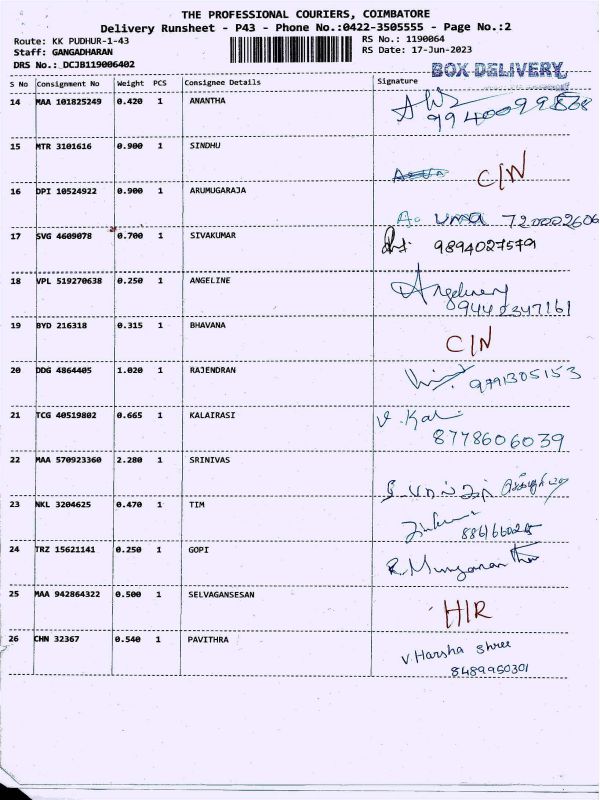 THE PROFESSIONAL COURIERS, COIMBATORE
Delivery Runsheet - P43 - Phone No.:0422-3505555 - Page No.:2
Route: KK PUDHUR-1-43 RS No.: 1190064
Staff: GANGADHARAN RS Date: 17-Jun-2023
DRS No.: DCJB119006402 BOX DELIVERY
S No Consignment No Weight PCS Consignee Details Signature
14 MAA 101825249 0.420 1 ANANTHA
15 MTR 3101616 0.900 1 SINDHU C/N
16 DPI 10524922 0.900 1 ARUMUGARAJA uma 720002606
17 SVG 4609078 0.700 1 SIVAKUMAR 9894027579
18 VPL 519270638 0.250 1 ANGELINE Angeline
19 BYD 216318 0.315 1 BHAVANA C/N
20 DDG 4864405 1.020 1 RAJENDRAN 9791305153
21 TCG 40519802 0.665 1 KALAIRASI V. Kal
8778606039
22 MAA 570923360 2.280 1 SRINIVAS
23 NKL 3204625 0.470 1 TIM
24 TRZ 15621141 0.250 1 GOPI
25 MAA 942864322 0.500 1 SELVAGANSESAN H/R
26 CHN 32367 0.540 1 PAVITHRA V.Harsha Shree
8489950301